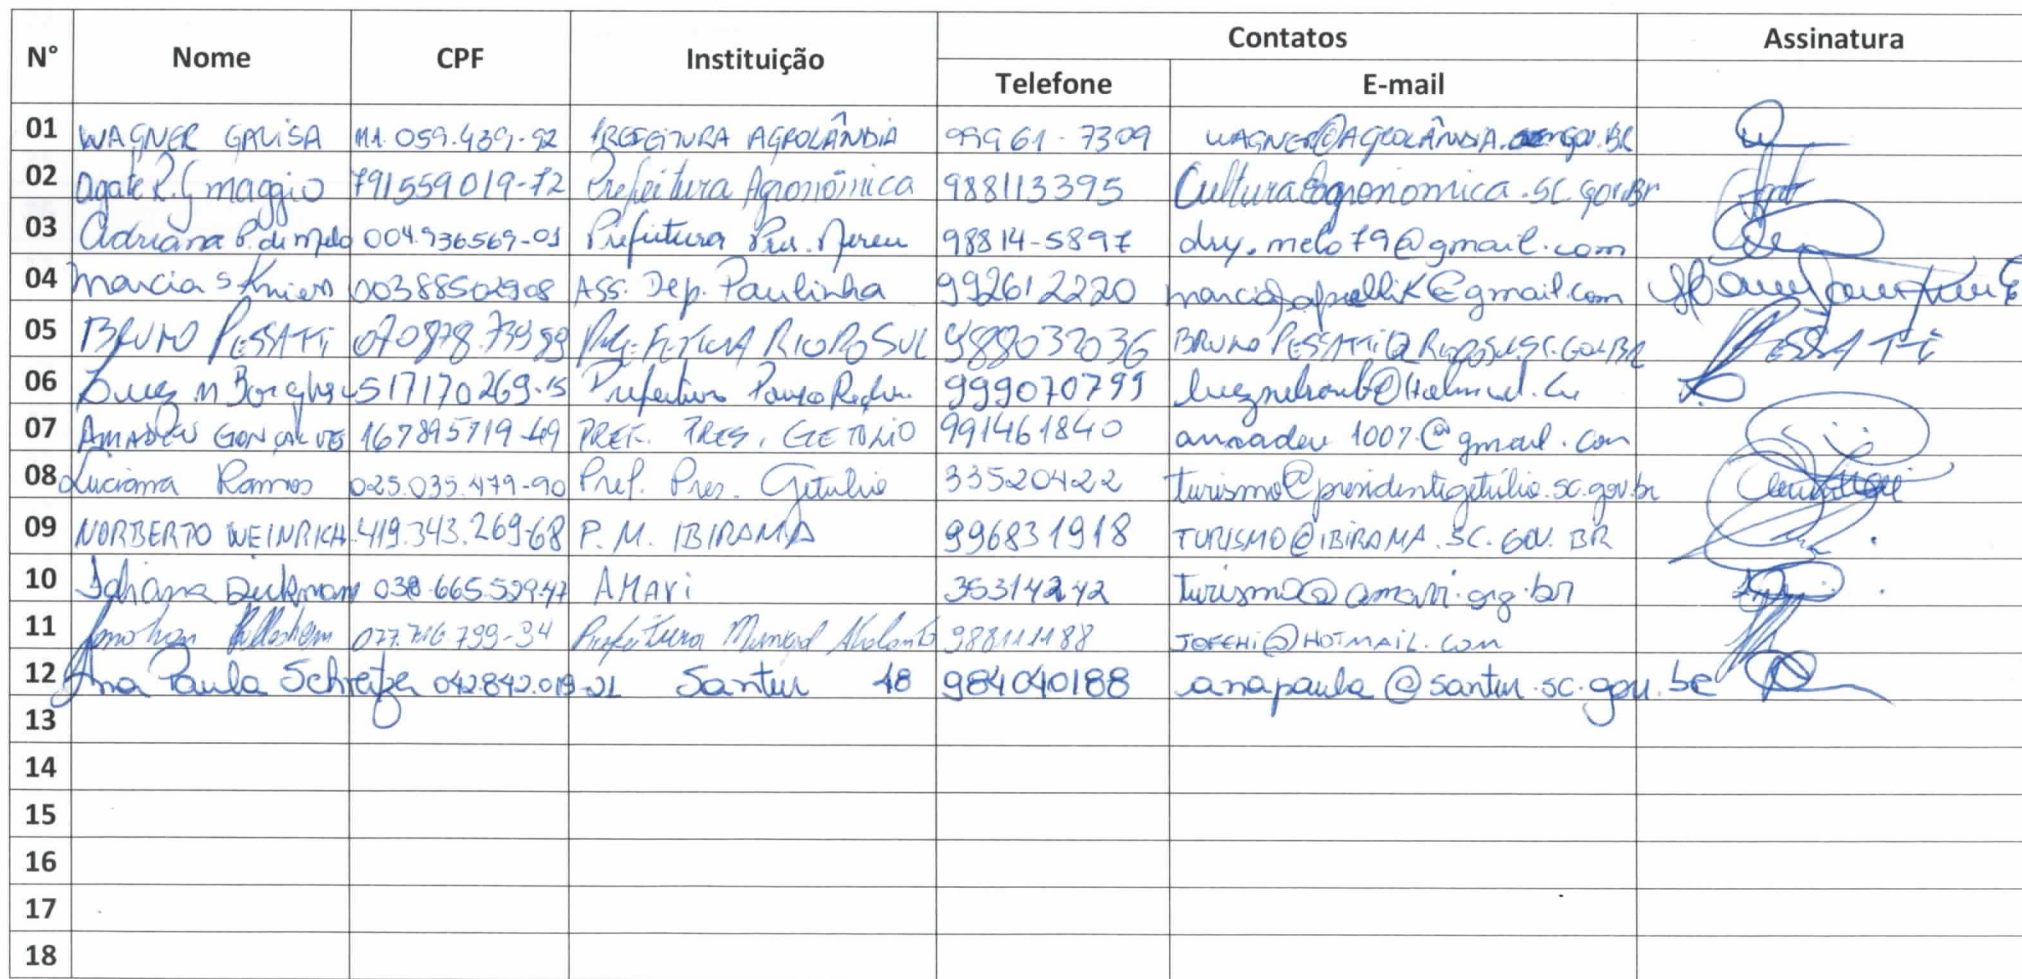 N° Nome CPF Instituição Contatos Assinatura
Telefone E-mail
01 WAGNER GAVISA 111.059.439-92 PREFEITURA AGROLÂNDIA 99961-7309 WAGNER@AGROLÂNDIA. gov.BR
02 Agate R. G maggio 791559019-72 Prefeitura Agronômica 988113395 Cultura@agronomica.sc.gov.Br
03 Adriana P. de Melo 004.936569-01 Prefeitura Pres. Nereu 98814-5897 dry.melo79@gmail.com
04 Marcia S Kniess 00388502908 ASS. Dep. Paulinha 992612220 @gmail.com
05 BRUNO PESSATTI 070878.739 89 PREFEITURA RIO DO SUL 988032036 BRUNO PESSATTI@RIODOSUL.SC.GOV.BR PESSATTI
06 Luiz N Borghes 517170269-15 Prefeitura Pouso Redon. 999070799
07 AMADEU GONÇALVES 167895719-49 PREF. PRES. GETULIO 991461840 amadeu 1007@gmail.com
08 Luciana Ramos 025.035.479-90 Pref. Pres. Getulio 33520422 turismo@presidentegetulio.sc.gov.br
09 NORBERTO WEINRICH 419.343.269-68 P. M. IBIRAMA 996831918 TURISMO@IBIRAMA.SC.GOV.BR
10 Dickmann 038.665.599.47 AMAVi 35314242 turismo@amavi.org.br
11 077.716 799-34 Prefeitura Municipal 988111188 JOFEHI@HOTMAIL.COM
12 Ana Paula Schreifer 042.842.019-21 Santur 48 984040188 anapaula@santur.sc.gov.br
13
14
15
16
17
18